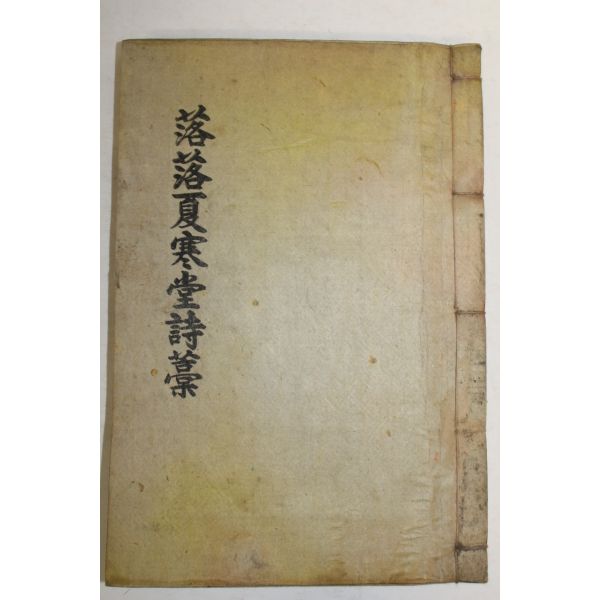 落落夏寒堂詩藁